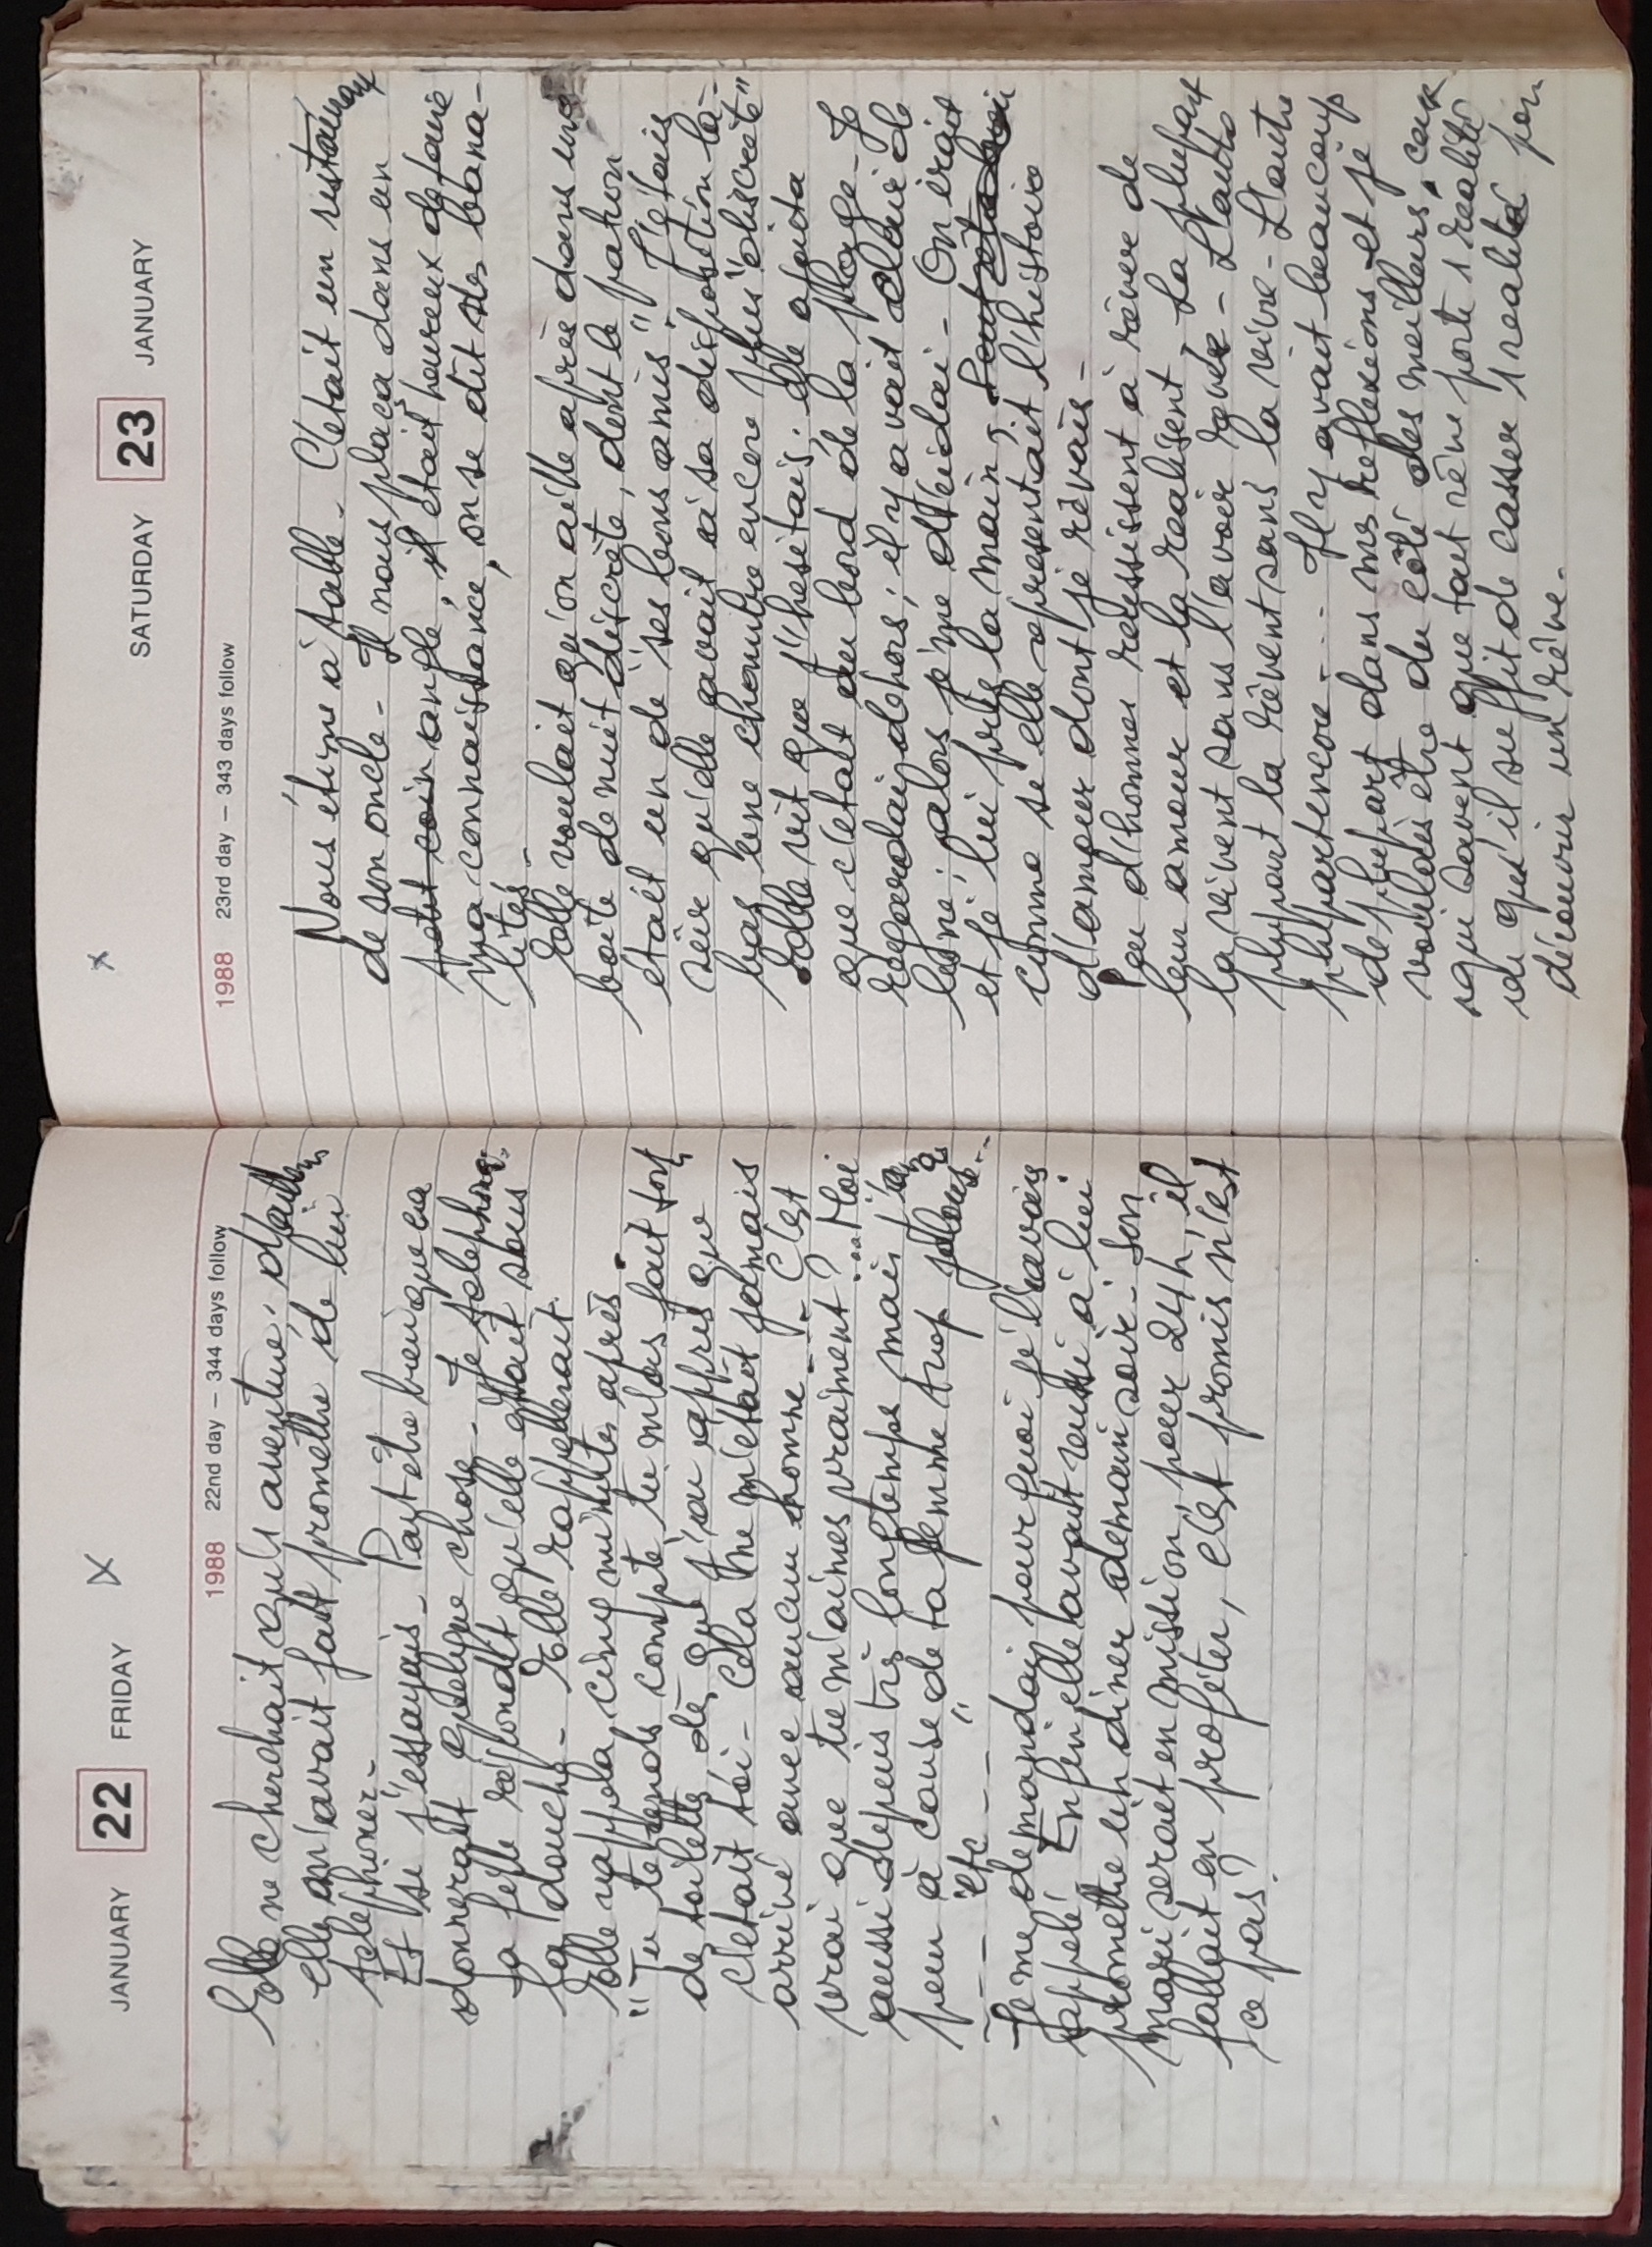 JANUARY 22 FRIDAY X
1988 22nd day – 344 days follow
Elle ne cherchait qu'1 aventure; d'ailleurs
elle m'avait fait promettre de lui
téléphoner-
Et si j'essayais- Peut être bien que ça
donnerait quelque chose- Je téléphonai.
La fille répondit qu'elle était sous
la douche- Elle rappellerait.
Elle rappela cinq minutes après.
"Tu te rends compte tu m'as fait sortir
de toilette dès que j'ai appris que
c'était toi- Cela ne m'était jamais
arrivé avec aucun homme --- C'est
vrai que tu m'aimes vraiment? ... Moi
aussi depuis très longtemps mais j'ai
peur à cause de ta femme trop jalouse..
--- etc --- "
Je me demandais pourquoi je l'avais
appelé. Enfin elle avait réussi à lui
promettre un diner demain soir- Son
mari serait en mission, pour 24h, il
fallait en profiter, c'est promis n'est
ce pas?
x SATURDAY 23 JANUARY
1988 23rd day – 343 days follow
Nous étions à table- C'était un restaurant
de son oncle- Il nous plaça dans un
petit coin angle, il était heureux de faire
ma connaissance, on se dit des bana-
lités-
Elle voulait qu'on aille après dans une
boite de nuit discrète, dont le patron
était un de "ses bons amis". J'étais
sûr qu'elle avait à sa disposition là-
bas une chambre encore plus "discrète"
Elle vit que j'hésitais; elle ajouta
que c'était au bord de la plage- Je
regardais dehors; il y avait clair de
lune; alors je me décidai- On irait
et je lui pris la main;
comme se elle représentait l'histoire
d'amour dont je rêvais-
Peu d'hommes réussissent à rêver de
leur amour et la réalisent La plupart
la vivent sans l'avoir rêvée- L'autre
plupart la rêvent sans la vivre- L'autre
plupart encore --- Il y avait beaucoup
de plupart dans mes réflexions et je
voulais être du côté des meilleurs, ceux
qui savent que tout rêve porte 1 réalité
et qu'il suffit de casser 1 réalité pour
découvrir un rêve.